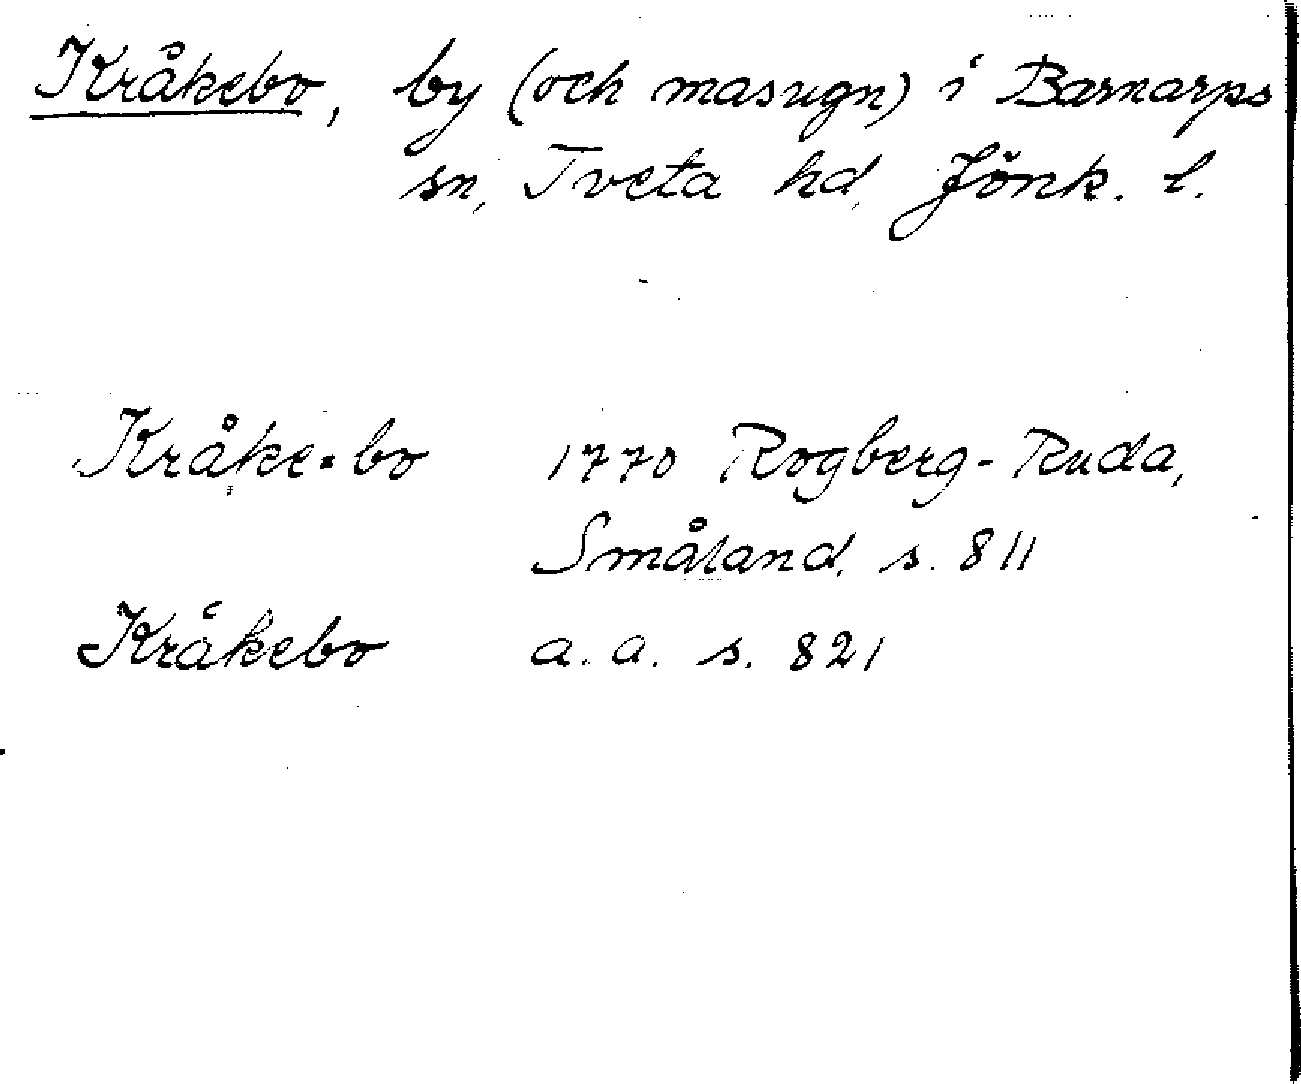 Kråkebo, by (och masugn) i Barnarps
sn, Tveta hd, Jönk. l.
Kråke-bo 1770 Rogberg-Ruda,
Småland, s. 811
Kråkebo a. a. s. 821